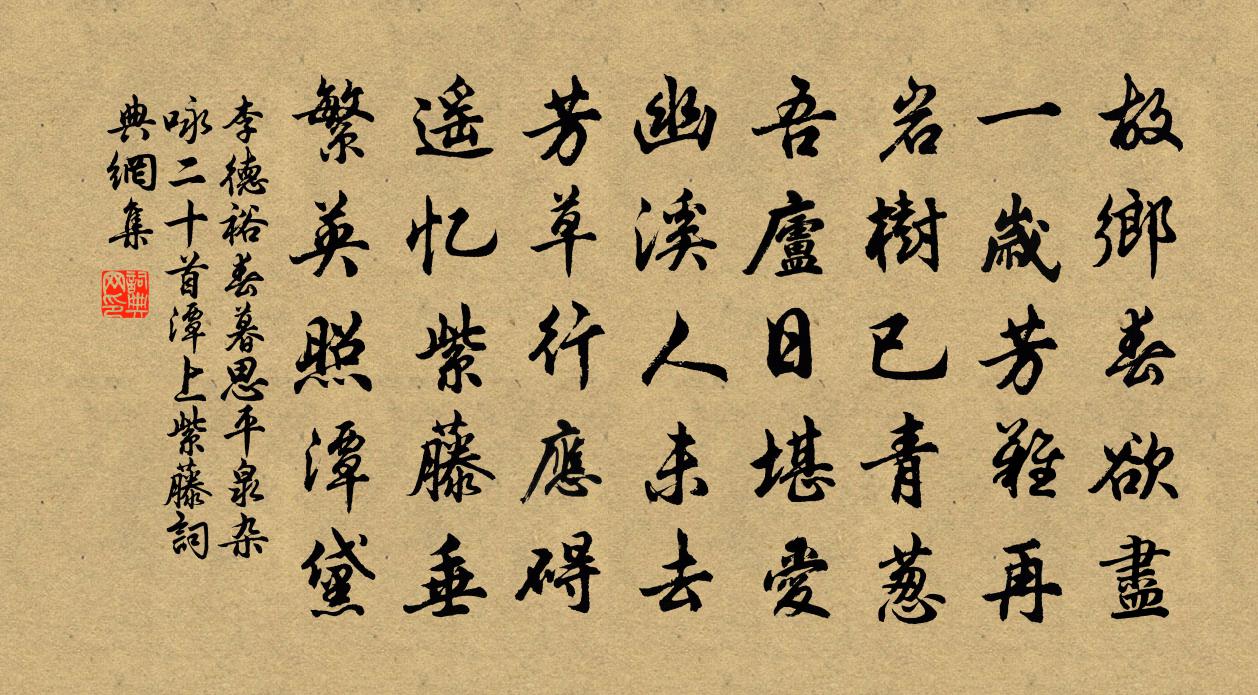 故鄉春欲盡
一歲芳難再
岩樹已青蔥
吾廬日堪愛
幽溪人未去
芳草行應碍
遥忆紫藤垂
繁英照潭黛
李德裕春暮思平泉杂
咏二十首潭上紫藤詞
典網集
詞典
网印